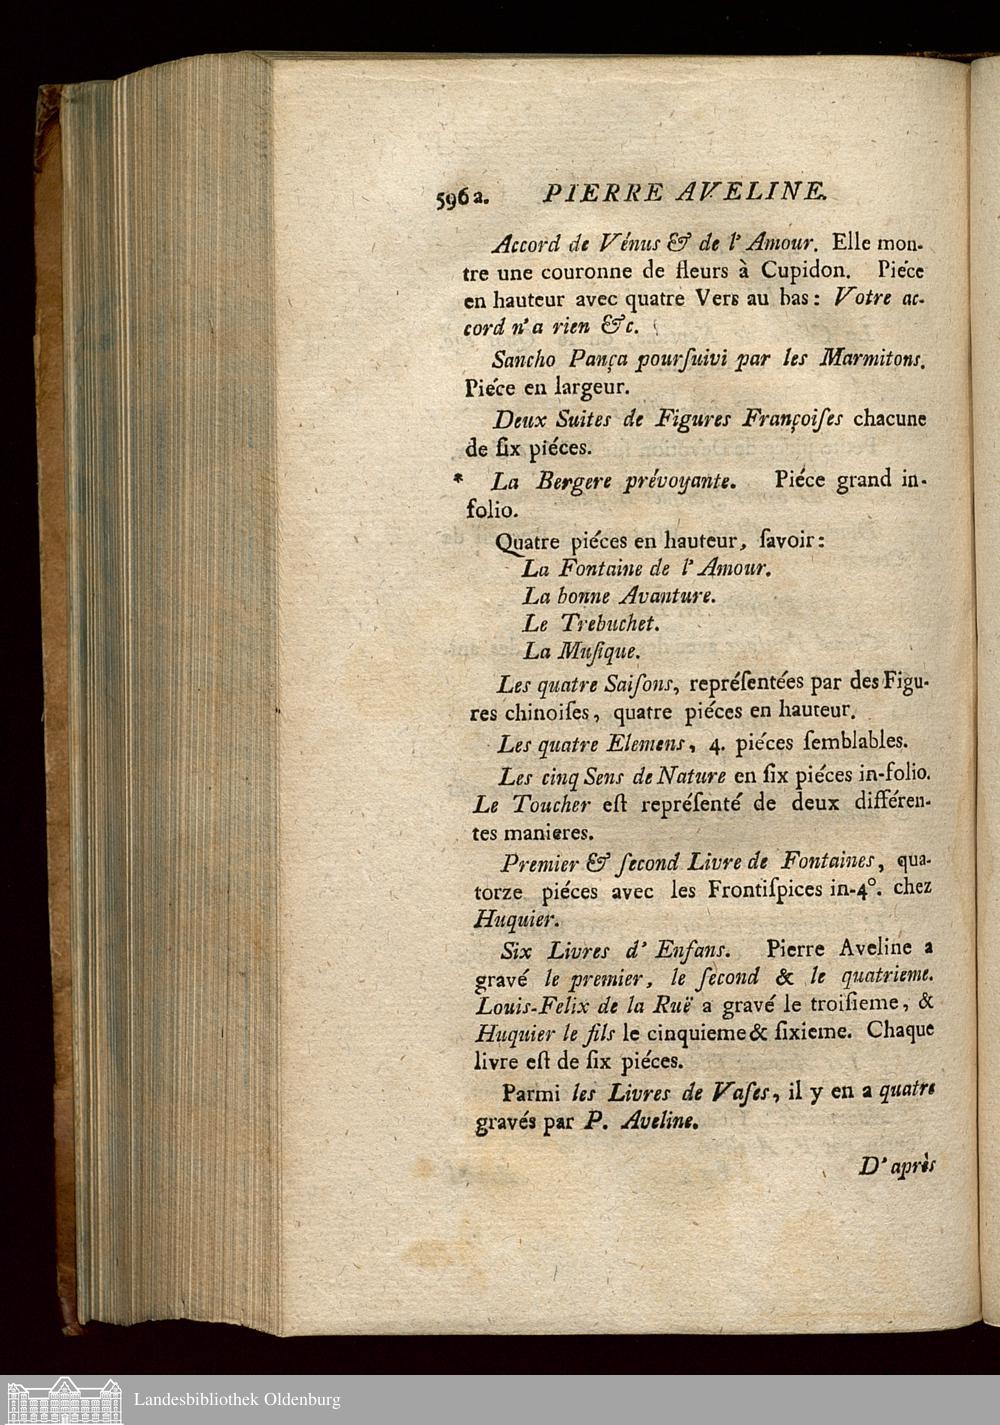 596a. PIERRE AVELINE.
Accord de Vénus & de l'Amour. Elle mon-
tre une couronne de fleurs à Cupidon. Piéce
en hauteur avec quatre Vers au bas: Votre ac-
cord n'a rien &c.
Sancho Pança pourſuivi par les Marmitons.
Piéce en largeur.
Deux Suites de Figures Françoiſes chacune
de ſix piéces.
* La Bergere prévoyante. Piéce grand in-
folio.
Quatre piéces en hauteur, ſavoir:
La Fontaine de l'Amour.
La bonne Avanture.
Le Trebuchet.
La Muſique.
Les quatre Saiſons, repréſentées par des Figu-
res chinoiſes, quatre piéces en hauteur.
Les quatre Elemens, 4. piéces ſemblables.
Les cinq Sens de Nature en ſix piéces in-folio.
Le Toucher eſt repréſenté de deux différen-
tes manieres.
Premier & ſecond Livre de Fontaines, qua-
torze piéces avec les Frontiſpices in-4°. chez
Huquier.
Six Livres d'Enfans. Pierre Aveline a
gravé le premier, le ſecond & le quatrieme.
Louis-Felix de la Ruë a gravé le troiſieme, &
Huquier le fils le cinquieme & ſixieme. Chaque
livre eſt de ſix piéces.
Parmi les Livres de Vaſes, il y en a quatre
gravés par P. Aveline.
D'après
Landesbibliothek Oldenburg